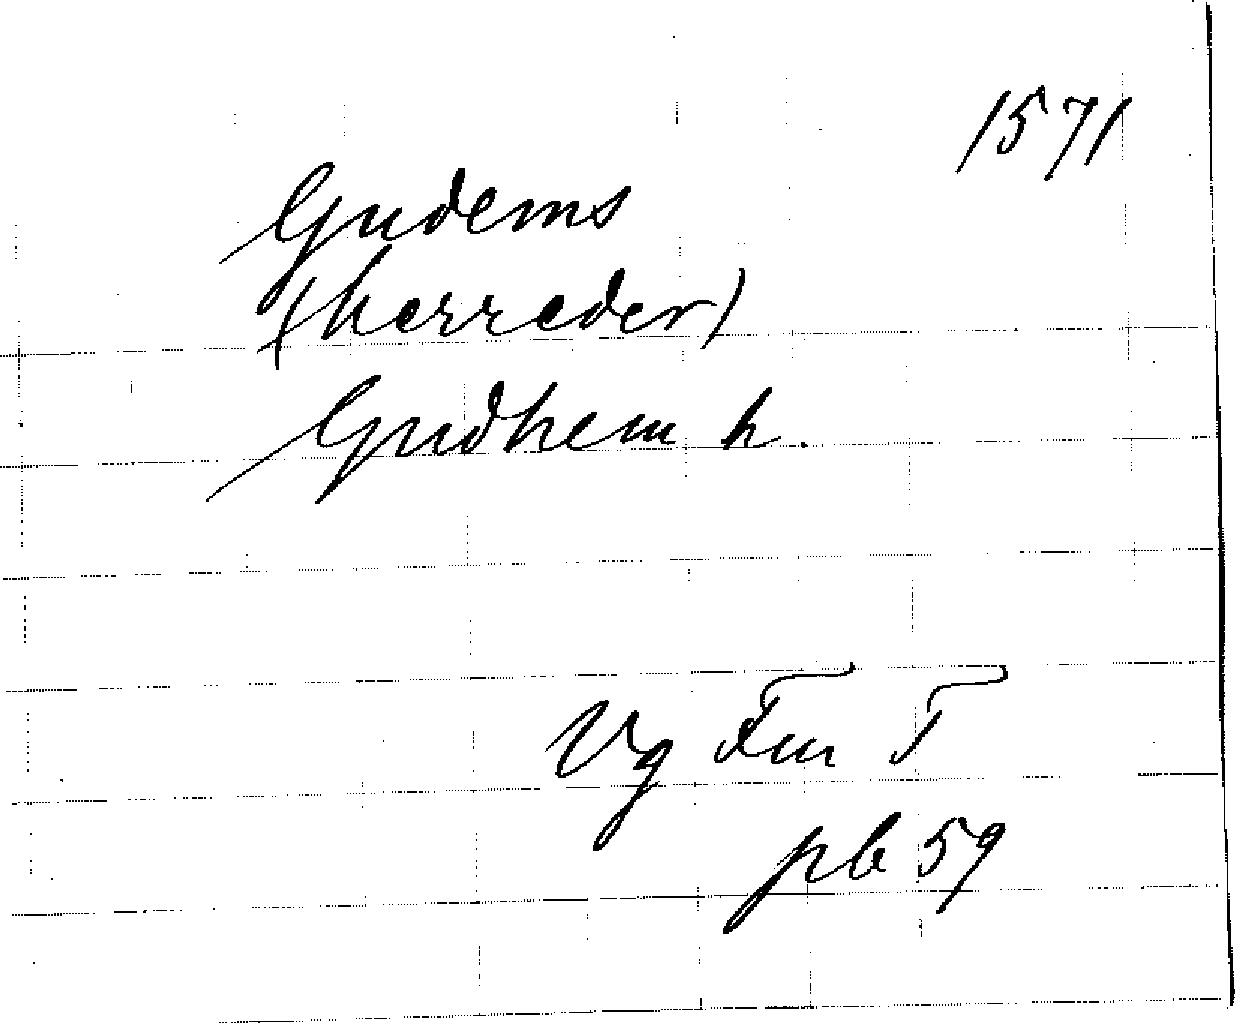 1571
Gudems
(herreder)
Gudhem h.
Vg Fm T
pb 59